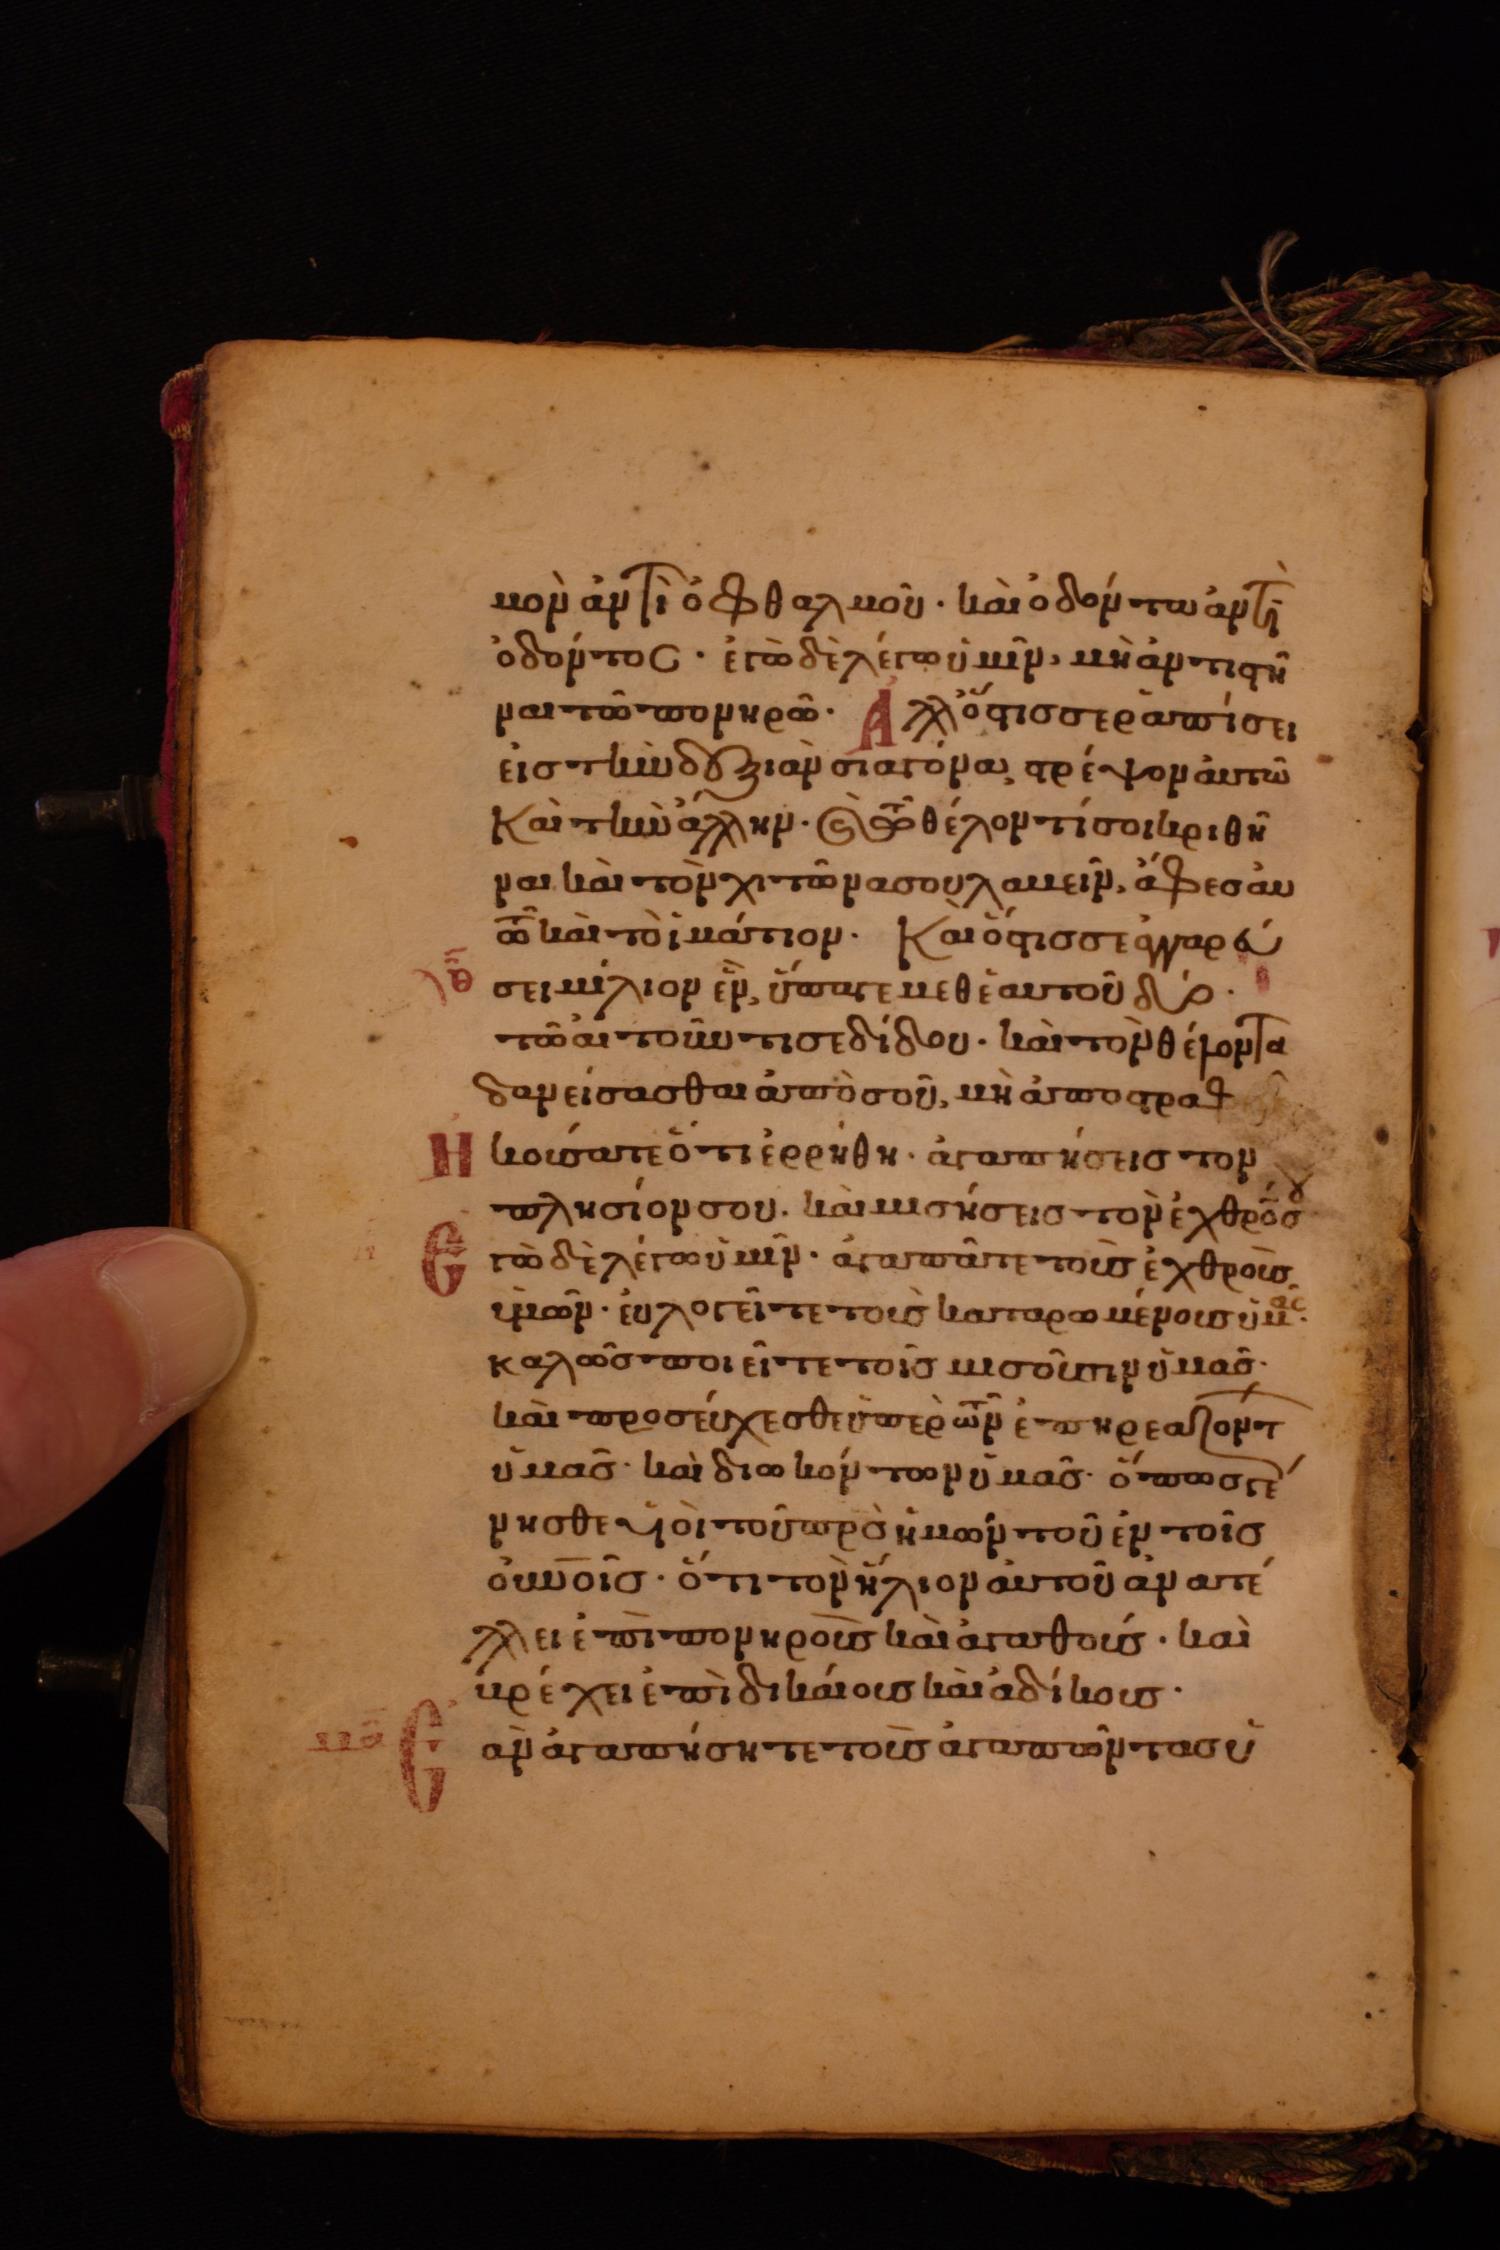 μὸν ἀντὶ ὀφθαλμοῦ · καὶ ὀδόντα ἀντὶ
ὀδόντος · ἐγὼ δὲ λέγω ὑμῖν, μὴ ἀντιστῆ
ναι τῶ πονηρῶ · Ἀλλ ὅστις σε ραπίσει
εἰς τὴν δεξιὰν σιαγόνα, στρέψον αὐτῶ
Καὶ τὴν ἄλλην · καὶ τῶ θέλοντί σοι κριθῆ
ναι καὶ τὸν χιτῶνα σου λαβεῖν, ἄφες αυ
τῶ καὶ τὸ ἱμάτιον · Καὶ ὅστις σε ἀγγαρεύ
σει μίλιον ἓν, ὕπαγε μεθ ἑαυτοῦ δύο ·
τῶ αἰτοῦντι σε δίδου · καὶ τὸν θέλοντα
δανείσασθαι ἀπὸ σοῦ, μὴ ἀποστραφ
Ἠκούσατε ὅτι ἐρρήθη · ἀγαπήσεις τον
πλησίον σου · καὶ μισήσεις τὸν ἐχθρόν σου
Ἐγὼ δὲ λέγω ὑμῖν · ἀγαπᾶτε τοὺς ἐχθροὺς
ὑμῶν · εὐλογεῖτε τοὺς καταρωμένους ὑμᾶς ·
καλῶς ποιεῖτε τοῖς μισοῦσιν ὑμᾶς ·
καὶ προσεύχεσθε ὑπὲρ τῶν ἐπηρεαζόντ
ὑμᾶς · καὶ διωκόντων ὑμᾶς · ὅπως γέ
νησθε υἱοὶ τοῦ πρς ἡμών τοῦ ἐν τοῖς
οὐνοῖς · ὅτι τὸν ἥλιον αὐτοῦ ἀνατέ
λλει ἐπὶ πονηροὺς καὶ ἀγαθούς · καὶ
βρέχει ἐπὶ δικάιους καὶ ἀδίκους ·
Ἐὰν ἀγαπήσητε τοὺς ἀγαπῶντας ὑ